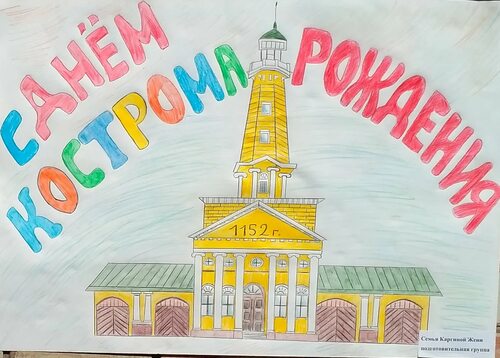 С ДНЁМ РОЖДЕНИЯ
КОСТРОМА
1152 г.
Семья Каргиной Жени
подготовительная группа